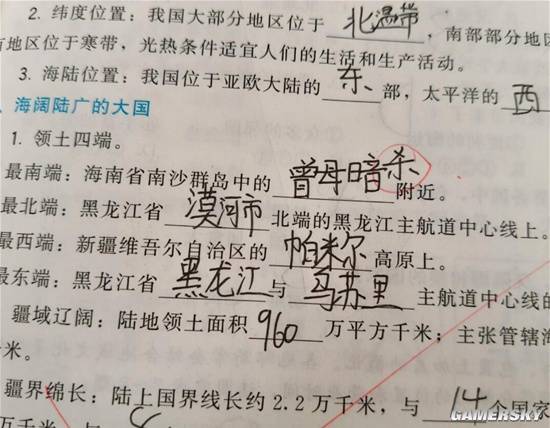 2. 纬度位置：我国大部分地区位于 北温带，南部部分地区
有地区位于寒带，光热条件适宜人们的生活和生产活动。
3. 海陆位置：我国位于亚欧大陆的 东 部，太平洋的 西
海阔陆广的大国
1. 领土四端。
最南端：海南省南沙群岛中的 曾母暗杀 附近。
最北端：黑龙江省 漠河市 北端的黑龙江主航道中心线上。
最西端：新疆维吾尔自治区的 帕米尔 高原上。
最东端：黑龙江省 黑龙江 与 乌苏里 主航道中心线的
疆域辽阔：陆地领土面积 960 万平方千米；主张管辖海
千米。
疆界绵长：陆上国界线长约 2.2 万千米，与 14 个国家
万千米，与
GAMERSKY